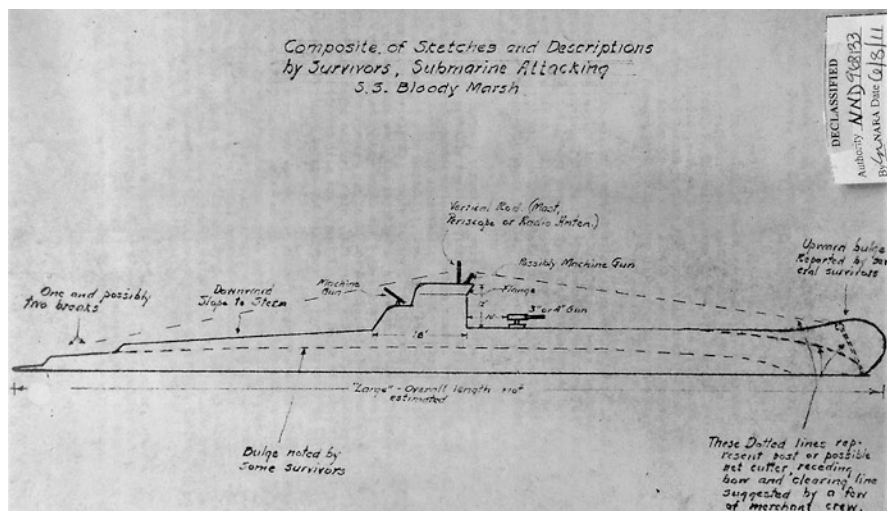 Composite of Sketches and Descriptions
by Survivors, Submarine Attacking
S.S. Bloody Marsh
DECLASSIFIED
Authority NND 968133
By NARA Date 6/8/11
Vertical Rod. (Mast,
Periscope or Radio Anten.)
Possibly Machine Gun
Upward bulge
Reported by sev
eral survivors
One and possibly
two breaks
Downward
Slope to Stern
Machine
Gun
Flange
12'
14'
3" or 4" Gun
18'
"Large" - Overall length not
estimated
Bulge noted by
some survivors
These Dotted lines rep-
resent post or possible
net cutter, receding
bow and clearing line
suggested by a few
of merchant crew.